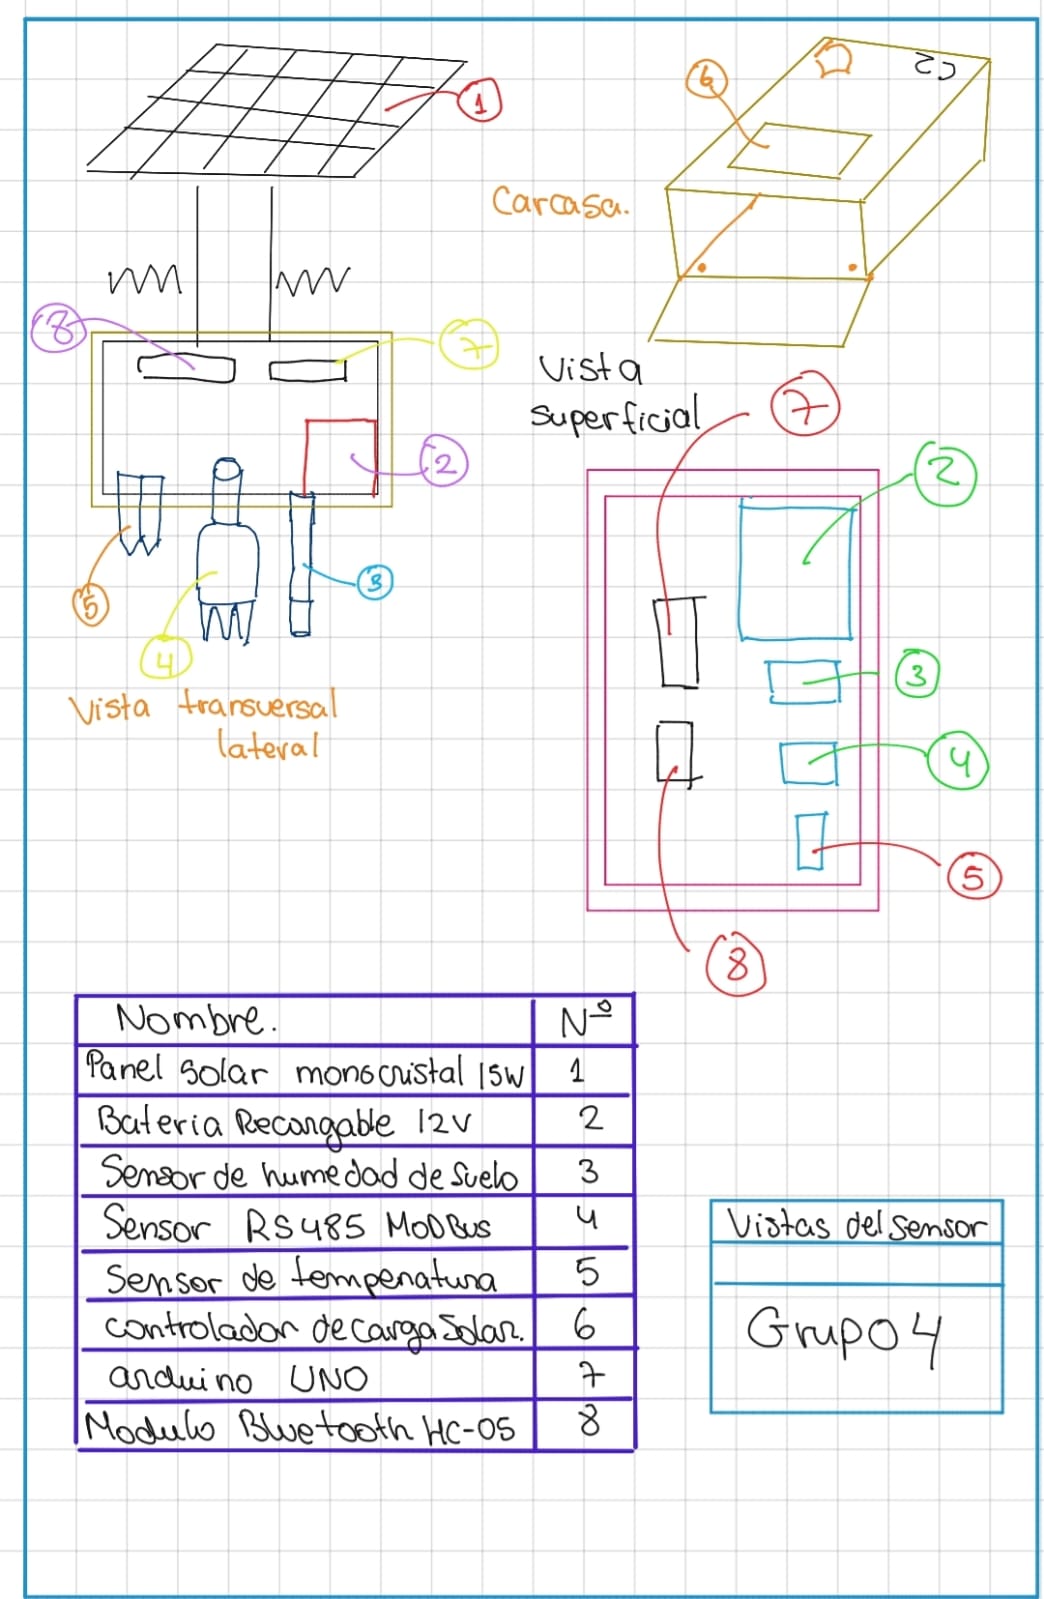 1
6
Carcasa.
8
7
Vista
superficial
7
2
2
5
3
4
3
Vista transversal
lateral
4
5
8
Nombre. Nº
Panel Solar monocristal 15W 1
Bateria Recargable 12V 2
Sensor de humedad de Suelo 3
Sensor RS485 MODBus 4
Sensor de temperatura 5
controlador de carga Solar. 6
arduino UNO 7
Modulo Bluetooth HC-05 8
Vistas del Sensor
Grupo 4